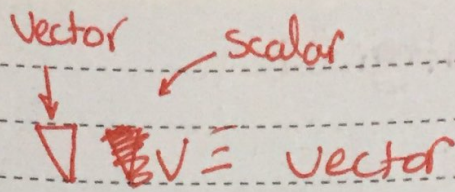 vector scalar
∇ V = vector